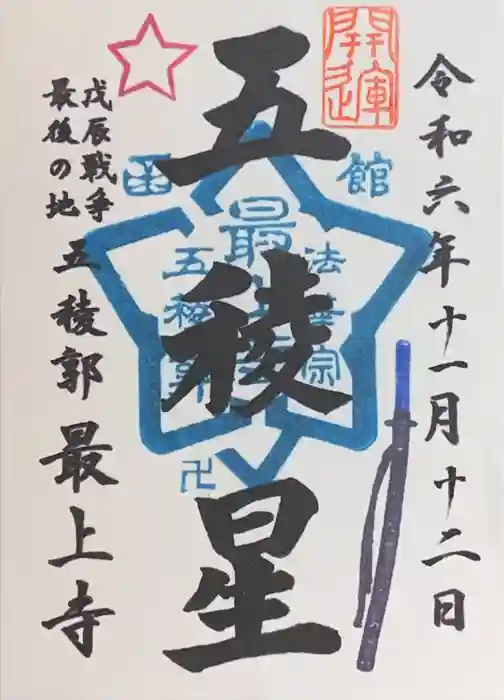 開運
令和六年十一月十二日
五稜星
函館
法華宗
最上寺
五稜郭
卍
戊辰戦争
最後の地
五稜郭最上寺